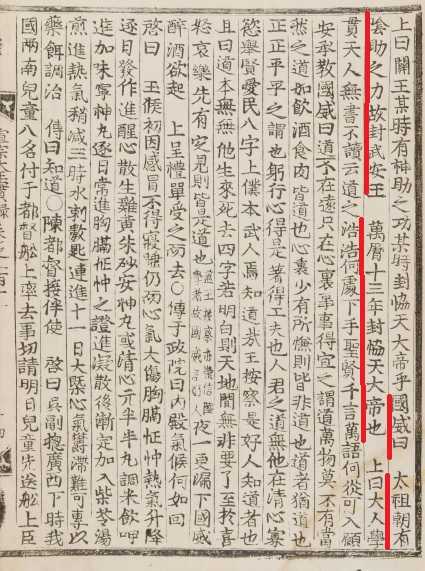 上曰關王某時有神助之功某時封協天大帝乎國威曰 太祖朝有
陰助之力故封武安王 萬曆十三年封協天大帝也 上曰大人學
貫天人無書不讀云道之浩浩何處下手聖賢千言萬語何從可入願
安承教國威曰道不在遠只在心裏事事得宜之謂道萬物莫不有當
然之道如飲酒食肉皆道也心裏少有所慊則皆非道也道者猶道也
正正平平之謂也躬行心得是著得工夫也人君之道無他在清心寡
慾舉賢愛民八字上僕本武人焉知道若王按察是好人知道者也
且曰道本無無他生來死去四字若明白則天地間無非要了至於喜
怒哀樂先有定見則皆是道也 夜一更漏下國威
醉酒欲起 上呈禮單受之而去○傳于政院曰內殿氣候何如回
啓曰 玉候初因感冒不得寢睡仍而心氣大傷胸膈怔忡熱氣升降
逐日發作進醒心散生雞黃朱砂安神丸或清心元半半丸調米飲呷
進加味寧神丸逐日常進胸膈怔忡之證進凝散後漸定加入柴苓湯
煎進熱氣稍減三時水剌數匙連進十一日大槩心氣鬱滯難可專以
藥餌調治 傳曰知道○陳都督接伴使 啓曰吳副摠廣西下時我
國兩南兒童八名付于都督船上率去事切請明日兒童先送船上臣